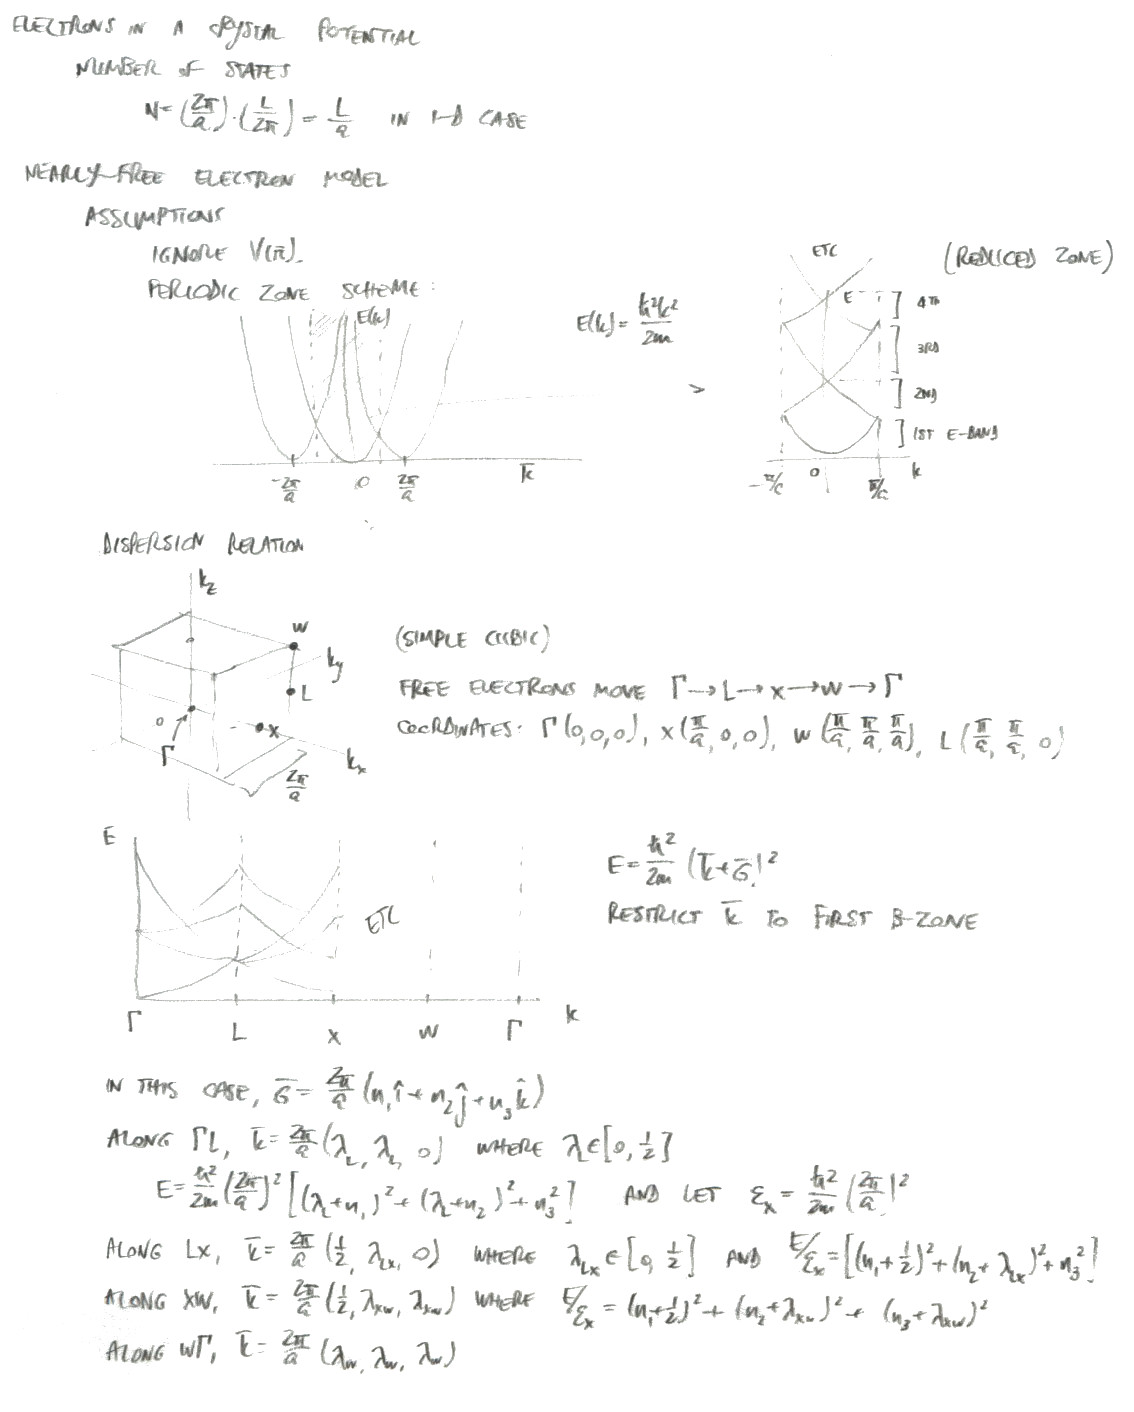 ELECTRONS IN A CRYSTAL POTENTIAL
NUMBER OF STATES
N = (2π/a)·(L/2π) = L/a IN 1-D CASE
NEARLY-FREE ELECTRON MODEL
ASSUMPTIONS
IGNORE V(r̄).
PERIODIC ZONE SCHEME:
E(k)
-2π/a 0 2π/a k̄
E(k) = ħ²k²/2m
>
ETC (REDUCED ZONE)
E
4TH
3RD
2ND
1ST E-BAND
-π/a 0 π/a k
DISPERSION RELATION
k_z
W
k_y
L
0 X
Γ k_x
2π/a
(SIMPLE CUBIC)
FREE ELECTRONS MOVE Γ→L→X→W→Γ
COORDINATES: Γ(0,0,0), X(π/a, 0, 0), W(π/a, π/a, π/a), L(π/a, π/a, 0)
E
ETC
Γ L X W Γ k
E = ħ²/2m (k̄+Ḡ)²
RESTRICT k̄ TO FIRST B-ZONE
IN THIS CASE, Ḡ = 2π/a (n₁î + n₂ĵ + n₃k̂)
ALONG ΓL, k̄ = 2π/a (λ_L, λ_L, 0) WHERE λ∈[0, 1/2]
E = ħ²/2m (2π/a)² [(λ_L+n₁)² + (λ_L+n₂)² + n₃²] AND LET ε_x = ħ²/2m (2π/a)²
ALONG LX, k̄ = 2π/a (1/2, λ_LX, 0) WHERE λ_LX ∈ [0, 1/2] AND E/ε_x = [(n₁+1/2)² + (n₂+λ_LX)² + n₃²]
ALONG XW, k̄ = 2π/a (1/2, λ_XW, λ_XW) WHERE E/ε_x = (n₁+1/2)² + (n₂+λ_XW)² + (n₃+λ_XW)²
ALONG WΓ, k̄ = 2π/a (λ_W, λ_W, λ_W)